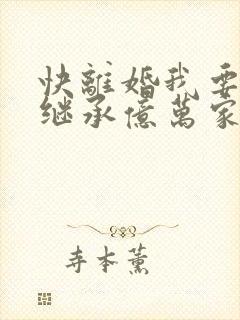 快離婚我要
继承億萬家
寺本薰